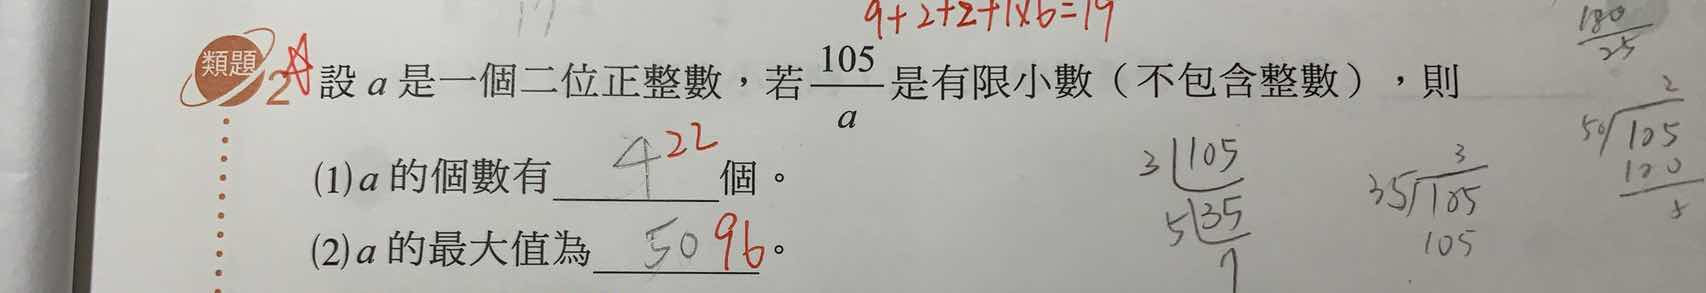 9+2+2+1×6=19
類題2 設 a 是一個二位正整數，若 105/a 是有限小數（不包含整數），則
(1) a 的個數有 4 22 個。
(2) a 的最大值為 50 96。
180
25
3 105
5 35
7
3
35 105
105
2
50 105
100
5